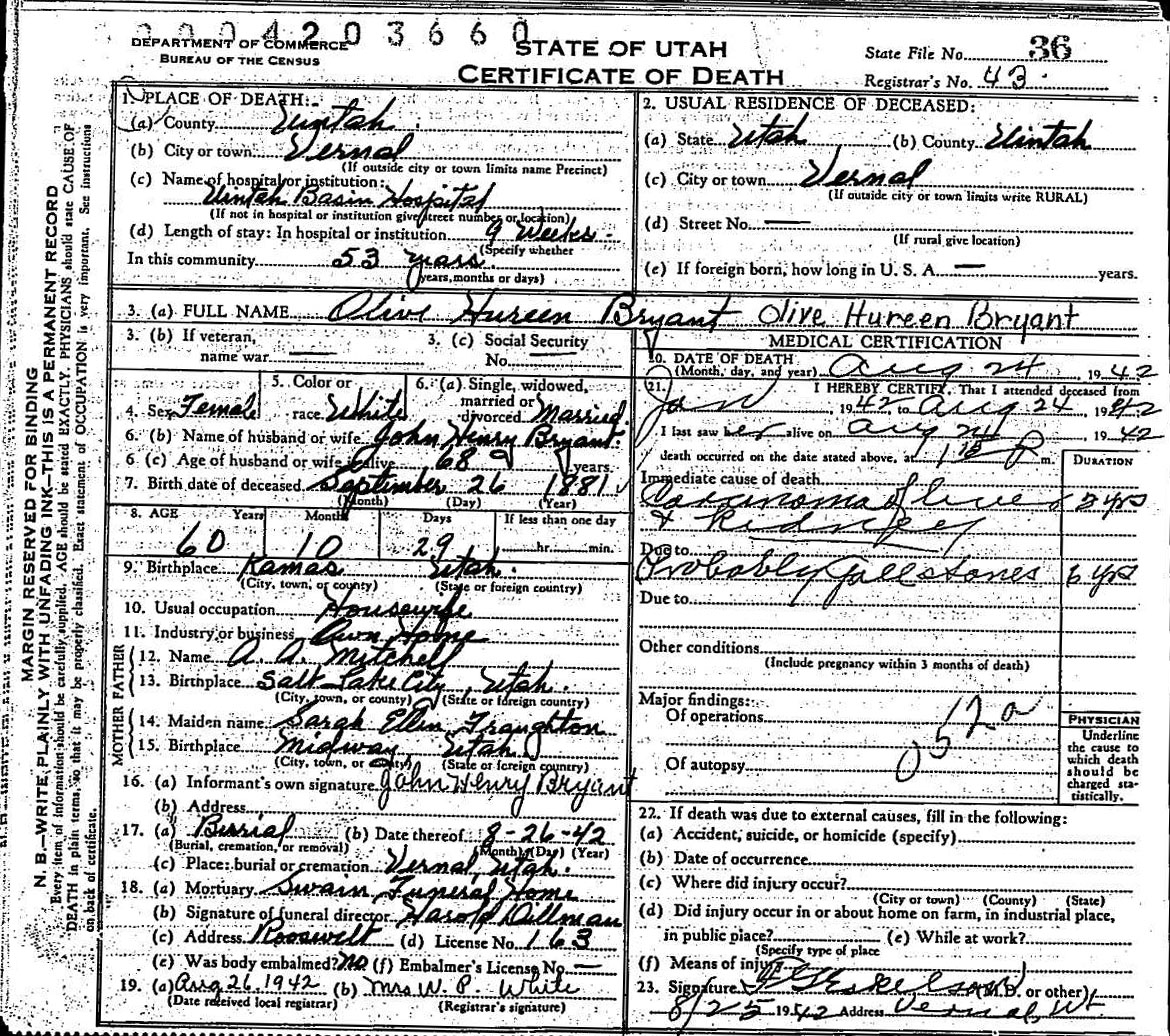 0004203660
DEPARTMENT OF COMMERCE
BUREAU OF THE CENSUS
STATE OF UTAH
CERTIFICATE OF DEATH
State File No. 36
Registrar's No. 43
MARGIN RESERVED FOR BINDING
N. B.—WRITE PLAINLY WITH UNFADING INK—THIS IS A PERMANENT RECORD
Every item of information should be carefully supplied. AGE should be stated EXACTLY. PHYSICIANS should state CAUSE OF
DEATH in plain terms, so that it may be properly classified. Exact statement of OCCUPATION is very important. See instructions
on back of certificate.
1. PLACE OF DEATH:
(a) County Uintah
(b) City or town Vernal
(If outside city or town limits name Precinct)
(c) Name of hospital or institution:
Uintah Basin Hospital
(If not in hospital or institution give street number or location)
(d) Length of stay: In hospital or institution 9 Weeks
(Specify whether
In this community 53 years
years, months or days)
2. USUAL RESIDENCE OF DECEASED:
(a) State Utah (b) County Uintah
(c) City or town Vernal
(If outside city or town limits write RURAL)
(d) Street No. —
(If rural give location)
(e) If foreign born, how long in U. S. A. — years.
3. (a) FULL NAME Olive Hureen Bryant Olive Hureen Bryant
3. (b) If veteran,
name war —
3. (c) Social Security
No. —
4. Sex Female
5. Color or
race White
6. (a) Single, widowed,
married or
divorced Married
6. (b) Name of husband or wife John Henry Bryant
6 (c) Age of husband or wife if alive 68 years
7. Birth date of deceased September 26 1881
(Month) (Day) (Year)
8. AGE Years Months Days If less than one day
60 10 29 hr. min.
9. Birthplace Kamas Utah
(City, town, or county) (State or foreign country)
10. Usual occupation Housewife
11. Industry or business Own Home
FATHER
12. Name A. A. Mitchell
13. Birthplace Salt Lake City, Utah.
(City, town, or county) (State or foreign country)
MOTHER
14. Maiden name Sarah Ellen Fraughton
15. Birthplace Midway Utah
(City, town, or county) (State or foreign country)
16. (a) Informant's own signature John Henry Bryant
(b) Address
17. (a) Burrial (b) Date thereof 8-26-42
(Burial, cremation, or removal) (Month) (Day) (Year)
(c) Place: burial or cremation Vernal, Utah.
18. (a) Mortuary Swain Funeral Home
(b) Signature of funeral director Harold Dillman
(c) Address Roosevelt (d) License No. 163
(e) Was body embalmed? no (f) Embalmer's License No. —
19. (a) Aug 26 1942 (b) Mrs W. P. White
(Date received local registrar) (Registrar's signature)
MEDICAL CERTIFICATION
20. DATE OF DEATH
(Month, day, and year) Aug 24, 1942
21. I HEREBY CERTIFY, That I attended deceased from
Jan, 1942 to Aug 24, 1942
I last saw her alive on Aug 24, 1942
death occurred on the date stated above, at 1 15 P m.
DURATION
Immediate cause of death
Carcinoma of liver 2 yrs
& Kidney
Due to
Probably Gallstones 6 yrs
Due to
Other conditions
(Include pregnancy within 3 months of death)
Major findings:
Of operations
052a
Of autopsy
PHYSICIAN
Underline
the cause to
which death
should be
charged sta-
tistically.
22. If death was due to external causes, fill in the following:
(a) Accident, suicide, or homicide (specify)
(b) Date of occurrence
(c) Where did injury occur?
(City or town) (County) (State)
(d) Did injury occur in or about home on farm, in industrial place,
in public place? (e) While at work?
(Specify type of place
(f) Means of injury
23. Signature Eskelson (M.D. or other)
8/25 1942 Address Vernal, Ut